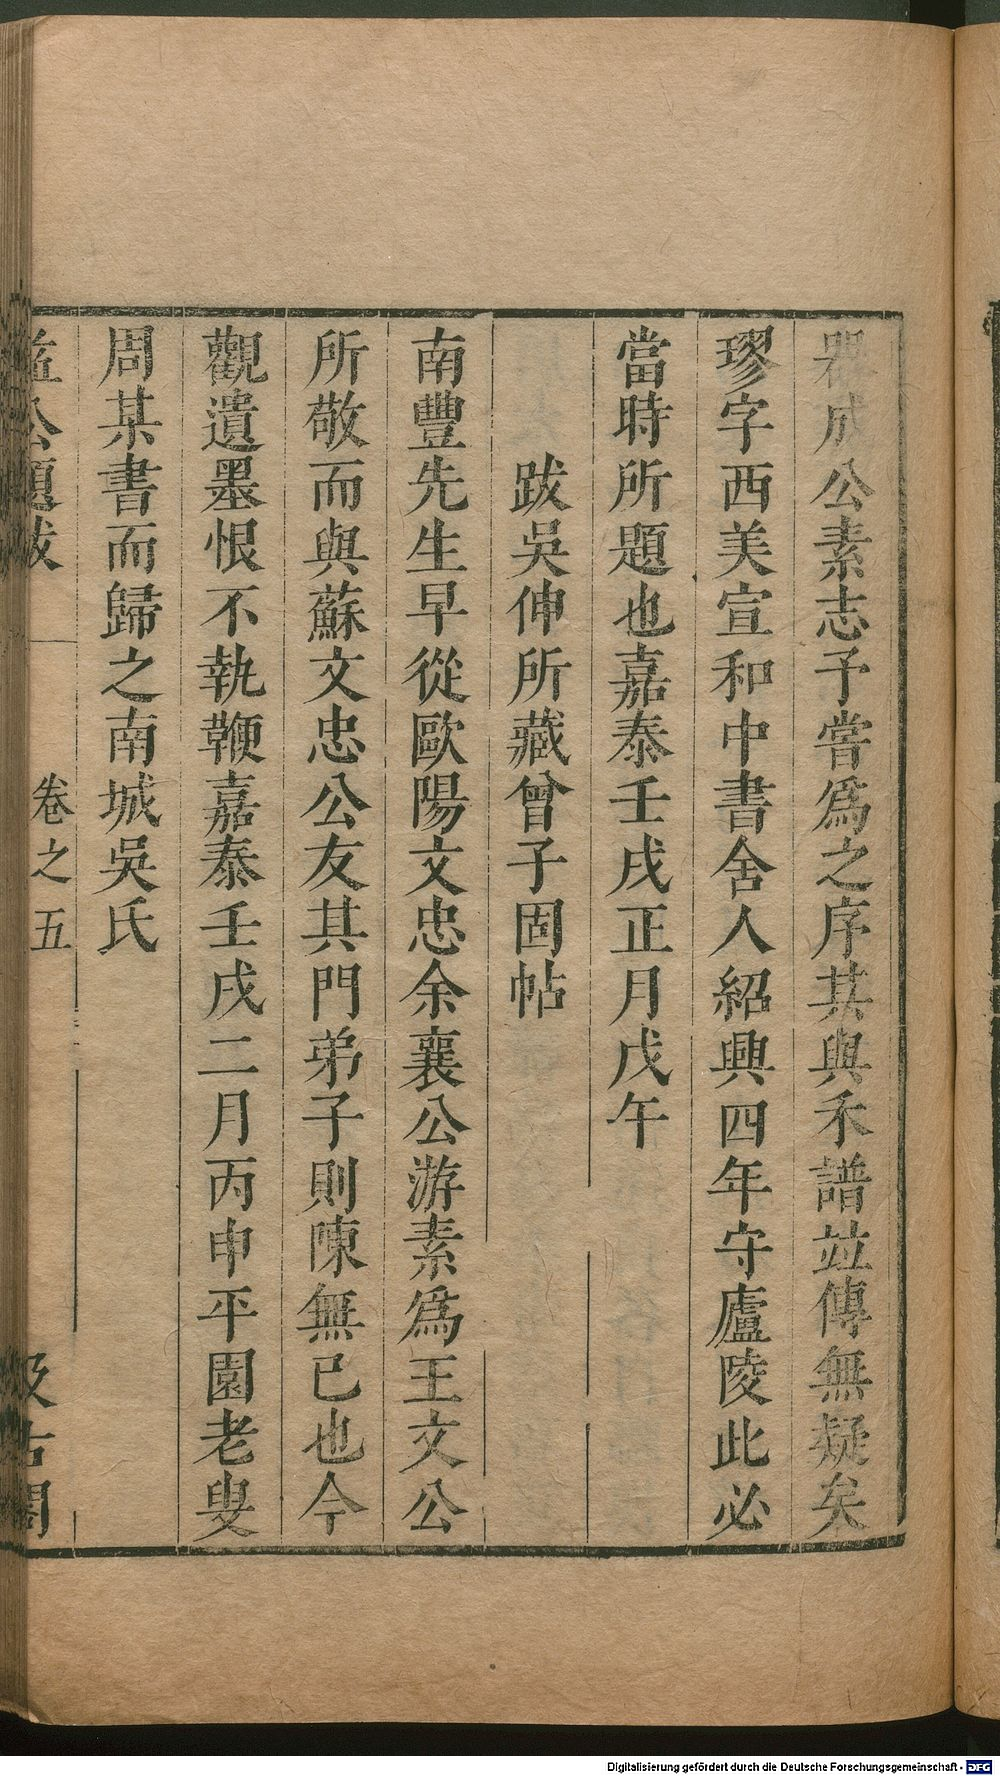 器成公素志予嘗爲之序其與禾譜竝傳無疑矣
璆字西美宣和中書舍人紹興四年守廬陵此必
當時所題也嘉泰壬戌正月戊午
跋吳伸所藏曾子固帖
南豐先生早從歐陽文忠余襄公游素爲王文公
所敬而與蘇文忠公友其門弟子則陳無已也今
觀遺墨恨不執鞭嘉泰壬戌二月丙申平園老叟
周某書而歸之南城吳氏
益公題跋 卷之五 汲古閣
Digitalisierung gefördert durch die Deutsche Forschungsgemeinschaft - DFG